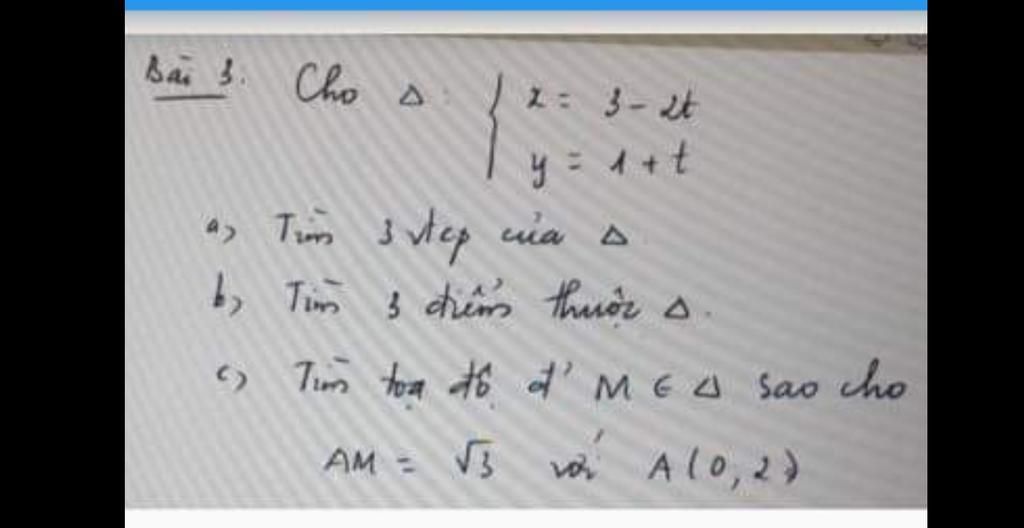 Bài 3. Cho Δ: { x = 3 - 2t
y = 1 + t
a) Tìm 3 vtcp của Δ
b) Tìm 3 điểm thuộc Δ.
c) Tìm toạ độ đ' M ∈ Δ sao cho
AM = √3 với A(0, 2)